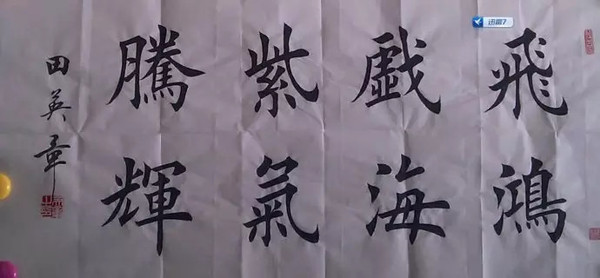 飛鴻
戲海
紫氣
騰輝
田英章
迅雷7